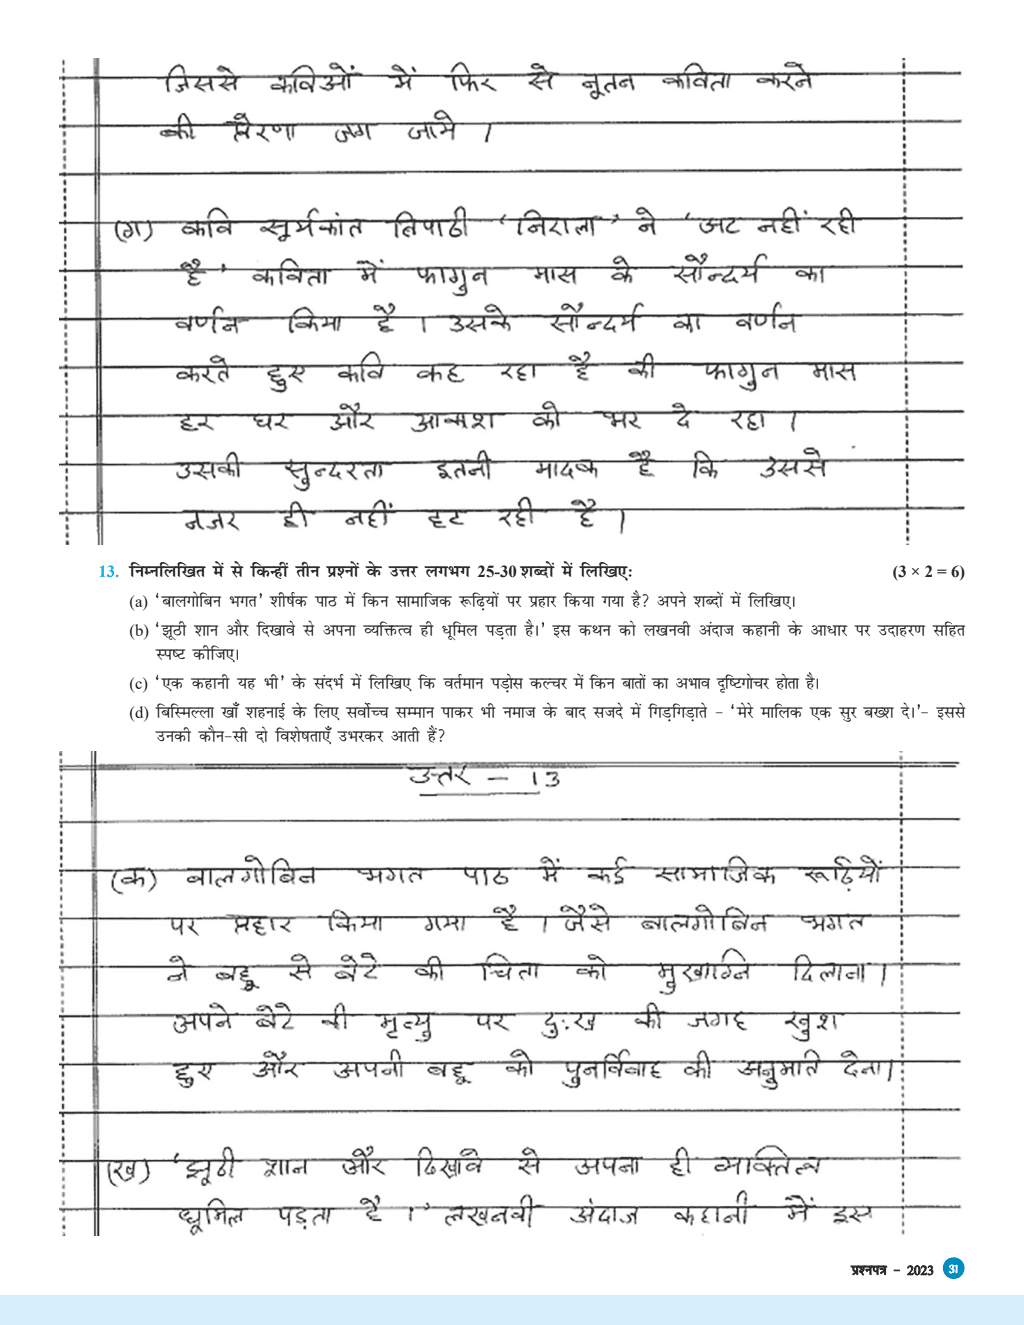 जिससे कविओं में फिर से नूतन कविता करने
की प्रेरणा जग जाये ।
(ग) कवि सूर्यकांत त्रिपाठी 'निराला' ने 'अट नहीं रही
है' कविता में फागुन मास के सौन्दर्य का
वर्णन किया है । उसके सौन्दर्य का वर्णन
करते हुए कवि कह रहा है की फागुन मास
हर घर और आकाश को भर दे रहा ।
उसकी सुन्दरता इतनी मादक है कि उससे
नजर ही नहीं हट रही है ।
13. निम्नलिखित में से किन्हीं तीन प्रश्नों के उत्तर लगभग 25-30 शब्दों में लिखिए: (3 × 2 = 6)
(a) 'बालगोबिन भगत' शीर्षक पाठ में किन सामाजिक रूढ़ियों पर प्रहार किया गया है? अपने शब्दों में लिखिए।
(b) 'झूठी शान और दिखावे से अपना व्यक्तित्व ही धूमिल पड़ता है।' इस कथन को लखनवी अंदाज कहानी के आधार पर उदाहरण सहित
स्पष्ट कीजिए।
(c) 'एक कहानी यह भी' के संदर्भ में लिखिए कि वर्तमान पड़ोस कल्चर में किन बातों का अभाव दृष्टिगोचर होता है।
(d) बिस्मिल्ला खाँ शहनाई के लिए सर्वोच्च सम्मान पाकर भी नमाज के बाद सजदे में गिड़गिड़ाते – 'मेरे मालिक एक सुर बख्श दे।'– इससे
उनकी कौन-सी दो विशेषताएँ उभरकर आती हैं?
उत्तर – 13
(क) बालगोबिन भगत पाठ में कई सामाजिक रूढ़ियों
पर प्रहार किया गया है । जैसे बालगोबिन भगत
ने बहू से बेटे की चिता को मुखाग्नि दिलाना।
अपने बेटे की मृत्यु पर दुःख की जगह खुश
हुए और अपनी बहू को पुनर्विवाह की अनुमति देना।
(ख) 'झूठी शान और दिखावे से अपना ही व्यक्तित्व
धूमिल पड़ता है ।' लखनवी अंदाज कहानी में इस
प्रश्नपत्र – 2023 31